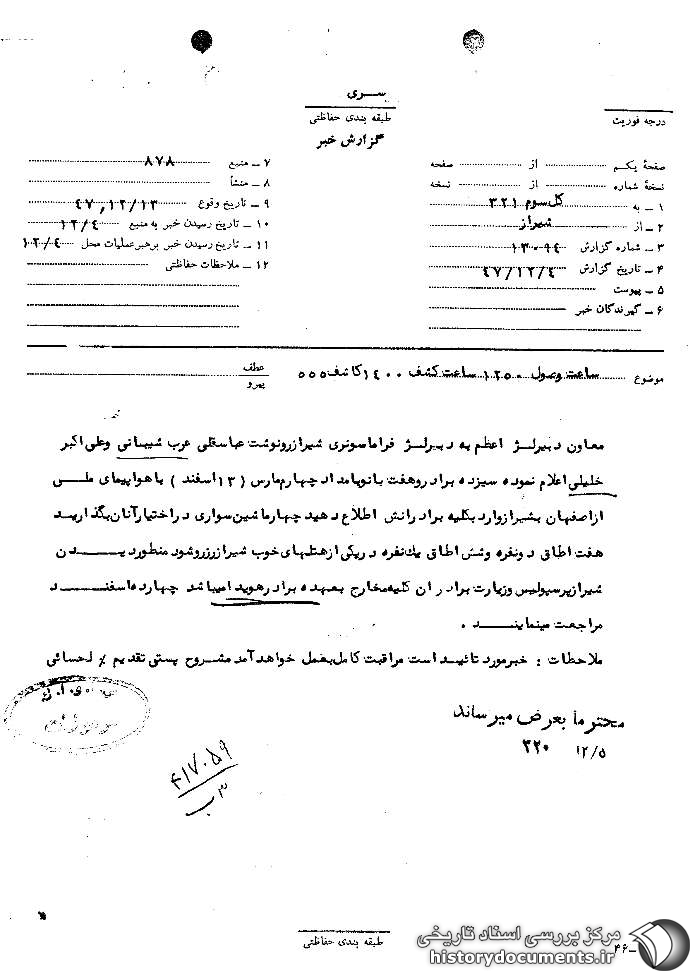 سری
درجه فوریت
طبقه بندی حفاظتی
گزارش خبر
صفحهٔ یکم از صفحه
نسخهٔ شماره از نسخه
۱ – به کل سوم ۳۲۱
۲ – از شیراز
۳ – شماره گزارش ۱۳۰۹۴
۴ – تاریخ گزارش ۴۷/۱۲/۴
۵ – پیوست
۶ – گیرندگان خبر
۷ – منبع ۸۷۸
۸ – منشأ
۹ – تاریخ وقوع ۴۷,۱۲/۱۳
۱۰ – تاریخ رسیدن خبر به منبع ۱۲/۴
۱۱ – تاریخ رسیدن خبر برهبر عملیات محل ۱۲/۴
۱۲ – ملاحظات حفاظتی
موضوع ساعت وصول ۱۲۵۰ ساعت کشف ۱۴۰۰ کاشف ۵۵۵
عطف
پیرو
معاون دبیرلژ اعظم به دبیرلژ فراماسونری شیراز رونوشت عباسقلی عرب شیبانی وعلی اکبر
خلیلی اعلام نموده سیزده برادر وهفت بانو بامداد چهارم مارس (۱۳ اسفند) باهواپیمای ملی
ازاصفهان بشیراز وارد بکلیه برادرانش اطلاع دهید چهارماشین سواری دراختیارآنان بگذارید
هفت اطاق دونفره وشش اطاق یك نفره دریکی ازهتلهای خوب شیراز رزرو شود منظور دیدن
شیراز پرسپولیس وزیارت برادران کلیه مخارج بعهده برادر هویدا میباشد چهارده اسفند
مراجعت مینمایند .
ملاحظات : خبرمورد تائید است مراقبت کامل بعمل خواهدآمد مشروح پستی تقدیم ٪ لحسائی
محترماً بعرض میرساند
۳۲۰ ۱۲/۵
۴۱۷۰۵۹
۳ب
طبقه بندی حفاظتی
۴۶ –
مرکز بررسی اسناد تاریخی
historydocuments.ir